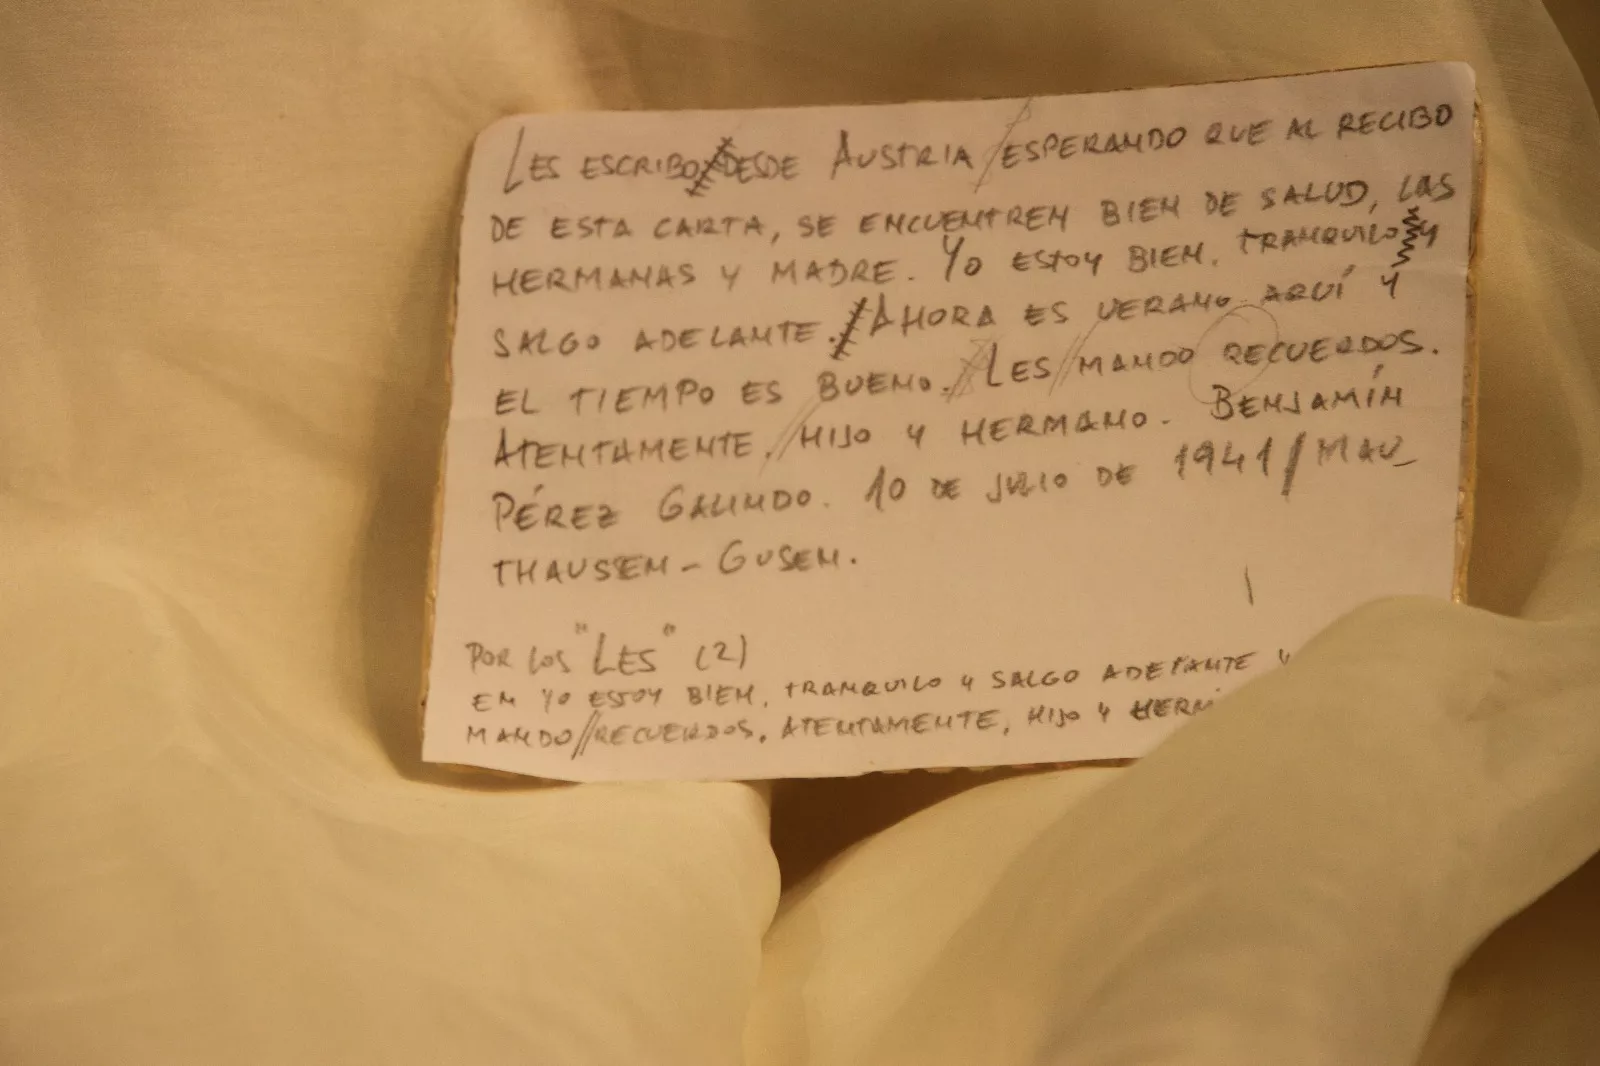 LES ESCRIBO DESDE AUSTRIA / ESPERANDO QUE AL RECIBO
DE ESTA CARTA, SE ENCUENTREN BIEN DE SALUD, LAS
HERMANAS Y MADRE. YO ESTOY BIEN. TRANQUILO Y
SALGO ADELANTE. / AHORA ES VERANO AQUÍ Y
EL TIEMPO ES BUENO. // LES // MANDO RECUERDOS.
ATENTAMENTE. // HIJO Y HERMANO. BENJAMÍN
PÉREZ GALINDO. 10 DE JULIO DE 1941 / MAU_
THAUSEN - GUSEN.
POR LOS "LES" (2)
EN YO ESTOY BIEN. TRANQUILO Y SALGO ADELANTE Y
MANDO // RECUERDOS. ATENTAMENTE, HIJO Y